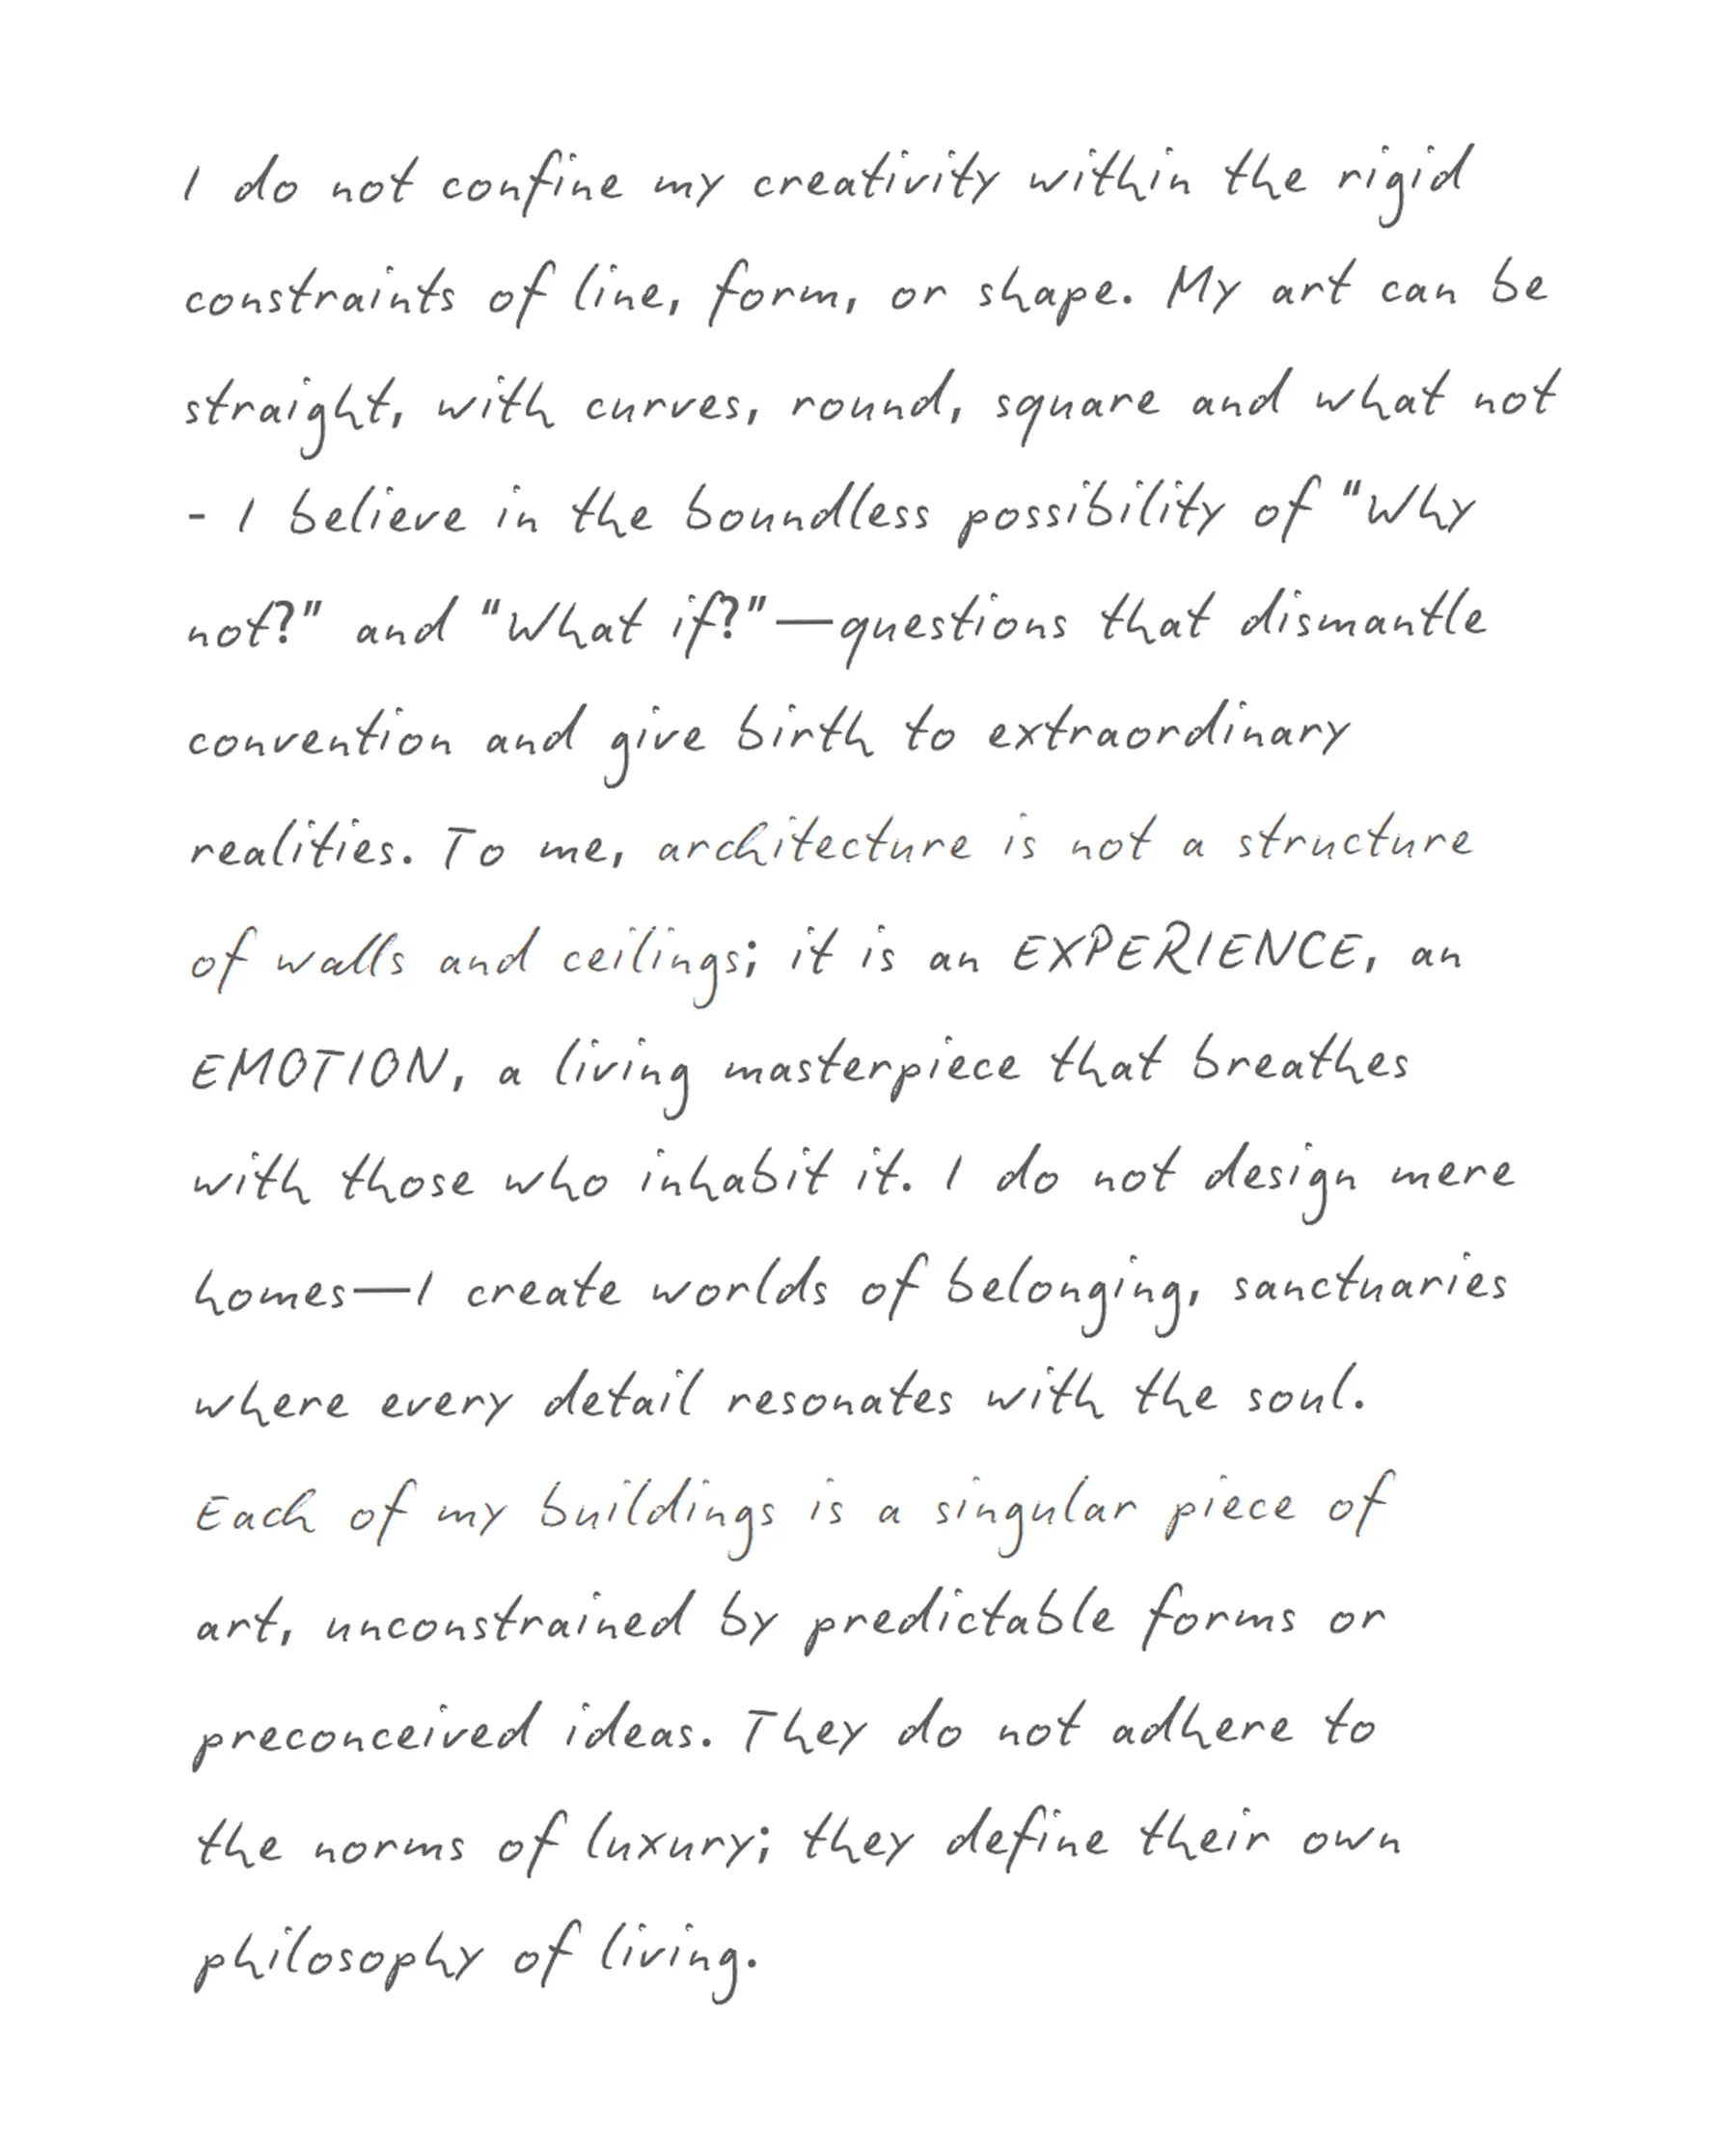 I do not confine my creativity within the rigid
constraints of line, form, or shape. My art can be
straight, with curves, round, square and what not
- I believe in the boundless possibility of "Why
not?" and "What if?"—questions that dismantle
convention and give birth to extraordinary
realities. To me, architecture is not a structure
of walls and ceilings; it is an EXPERIENCE, an
EMOTION, a living masterpiece that breathes
with those who inhabit it. I do not design mere
homes—I create worlds of belonging, sanctuaries
where every detail resonates with the soul.
Each of my buildings is a singular piece of
art, unconstrained by predictable forms or
preconceived ideas. They do not adhere to
the norms of luxury; they define their own
philosophy of living.